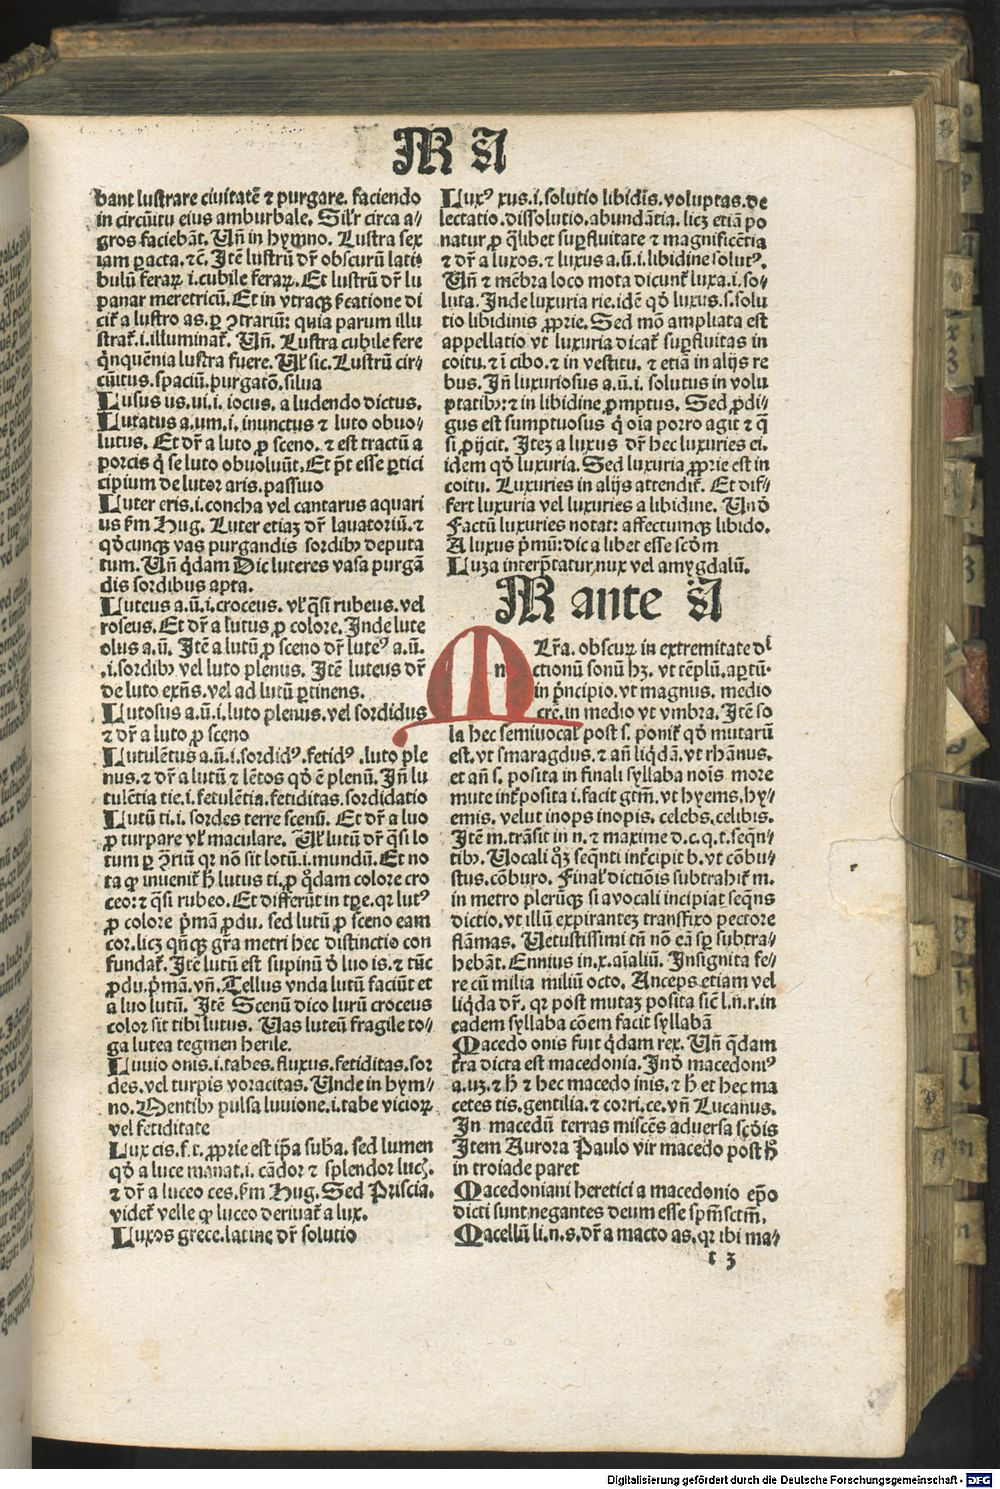 M A
bant lustrare ciuitatē ⁊ purgare. faciendo
in circūitu eius amburbale. Sil'r circa a//
gros faciebāt. Uñ in hymno. Lustra sex
iam ꝑacta. ⁊c̄. Itē lustrū dr̄ obscurū latis
bulū feraꝝ i. cubile feraꝝ. Et lustrū dr̄ lu
panar meretricū. Et in vtraqꝫ
a lustro as. ꝑ ꝯtrariū: quia parum illu
i. Uñ. Lustra cubile fere
qͥnquēnia lustra fuere. Ul' sic. Lustrū cir//
cūitus. spaciū. purgatō. silua
Lusus us. ui. i. iocus. a ludendo dictus.
Lutatus a. um. i. inunctus ⁊ luto obuo//
lutus. Et dr̄ a luto ꝓ sceno. ⁊ est tractū a
porcis qͥ se luto obuoluūt. Et p̄t esse ꝑtici
cipium de lutor aris. passiuo
Luter eris. i. concha vel cantarus aquari
us ẜm Hug. Luter etiaꝫ dr̄ lauatoriū. ⁊
qḋcunqꝫ vas purgandis sordibꝫ deputa
tum. Uñ qͥdam Dic luteres vasa purgā
dis sordibus apta.
Luteus a. ū. i. croceus. vl' qͣsi rubeus. vel
roseus. Et dr̄ a lutus ꝓ colore. Inde lute
olus a. ū. Itē a lutū ꝓ sceno dr̄ luteꝰ a. ū.
. i. sordibꝫ vel luto plenus. Itē luteus dr̄
de luto exñs. vel ad lutū ꝑtinens.
Lutosus a. ū. i. luto plenus. vel sordidus
⁊ dr̄ a luto ꝓ sceno
Lutulētus a. ū. i. sordidꝰ. fetidꝰ . luto ple
nus. ⁊ dr̄ a lutū ⁊ lētos qḋ ē plenū. Iñ lu
tulētia tie. i. fetulētia. fetiditas. sordidatio
Lutū ti. i. sordes terre scensū. Et dr̄ a luo
ꝓ turpare vl' maculare. Ul' lutū dr̄ qͣsi lo
tum ꝑ ꝯriū qꝛ nō sit lotū. i. mundū. Et no
ta ꝙ inuenit̄ h̄ lutus ti. ꝓ qͦdam colore cro
ceo: ⁊ qͣsi rubeo. Et differūt in tꝑe. qꝛ lutꝰ
ꝓ colore p̄mā ꝓdu. sed lutū ꝓ sceno eam
cor. licꝫ qñqꝫ gr̄a metri hec distinctio con
fundat̄. Itē lutū est supinū ḋ luo is. ⁊ tūc
ꝓdu. p̄mā. vñ. Tellus vnda lutū faciūt et
a luo lutū. Itē Scenū dico lutū croceus
color sit tibi lutus. Uas luteū fragile to//
ga lutea tegmen herile.
Luuio onis. i. tabes. fluxus. fetiditas. sor
des. vel turpis voracitas. Unde in hym//
no. Mentibꝫ pulsa luuione. i. tabe vicioꝝ
vel fetiditate
Lux cis. f. t. ꝓprie est ip̄a suba. sed lumen
qḋ a luce manat. i. cādor ⁊ splendor luc.
⁊ dr̄ a luceo ces. ẜm Hug. Sed Priscia.
videt̄ velle ꝙ luceo deriuat̄ a lux.
Luxos grece. latine dr̄ solutio
Luxꝰ xus. i. solutio libidīs. voluptas. de
lectatio. dissolutio. abundātia. licꝫ etiā po
natur ꝓ qͣlibet suꝑfluitate ⁊ magnificētia
⁊ dr̄ a luxos. ⁊ luxus a. ū. i. libidine solutꝰ.
Uñ ⁊ mēbra loco mota dicunt̄ luxa. i. so//
luta. Inde luxuria rie. idē qḋ luxus. s. solu
tio libidinis ꝓprie. Sed mō ampliata est
appellatio vt luxuria dicat̄ suꝑfluitas in
coitu. ⁊ ī cibo. ⁊ in vestitu. ⁊ etiā in alijs re
bus. Iñ luxuriosus a. ū. i. solutus in volu
ptatibꝫ: ⁊ in libidine ꝓmptus. Sed ꝓdi//
gus est sumptuosus qͥ oīa porro agit ⁊ qͣ
si ꝓijcit. Iteꝫ a luxus dr̄ hec luxuries ei.
idem qḋ luxuria. Sed luxuria ꝓprie est in
coitu. Luxuries in alijs attendit̄. Et dif//
fert luxuria vel luxuries a libidine. Unḋ
Factū luxuries notat: affectumqꝫ libido.
A luxus p̄mū: dic a libet esse scḋm
Luza interp̄tatur nux vel amygdalū.
M ante A
M Lr̄a. obscuꝝ in extremitate
n ctionū sonū hꝫ. vt tēplū. aꝑtū.
in p̄ncipio. vt magnus. medio
crē. in medio vt vmbra. Itē so
la hec semiuocal' post s. ponit̄ qḋ mutarū
est. vt smaragdus. ⁊ añ liqͥdā. vt rhānus.
et añ s. posita in finali syllaba nois more
mute int̄posita i. facit gtm̄. vt hyems. hy//
emis. velut inops inopis. celebs. celibis.
Itē m. trāsit in n. ⁊ maxime d. c. q. t. seqn̄//
tibꝫ. Uocali qͦꝫ seqn̄ti int̄cipit b. vt cōbu//
stus. cōburo. Final' dictiōis subtrahit̄ m.
in metro plerūqꝫ si a vocali incipiat seqn̄s
dictio. vt illū expiranteꝫ transfixo pectore
flāmas. Uetustissimi tn̄ nō eā sꝑ subtra//
hebāt. Ennius in. x. aīaliū. Insignita fe//
re cū milia miliū octo. Anceps etiam vel
liqͥda dr̄. qꝛ post mutaꝫ posita sic̄ l. n. r. in
eadem syllaba cōem facit syllabā
Macedo onis fuit qͥdam rex. Uñ qͥdam
t̄ra dicta est macedonia. Inḋ macedoniꝰ
a. uꝫ. ⁊ h̄ ⁊ hec macedo inis. ⁊ h̄ et hec ma
cetes tis. gentilia. ⁊ corri. ce. vñ Lucanus.
In macedū terras miscēs aduersa scḋis
Item Aurora Paulo vir macedo post h̄
in troiade paret
Macedoniani heretici a macedonio epō
dicti sunt. negantes deum esse spm̄ sctm̄.
Macellū li. n. s. dr̄ a macto as. qꝛ ibi ma//
r 3
Digitalisierung gefördert durch die Deutsche Forschungsgemeinschaft - DFG